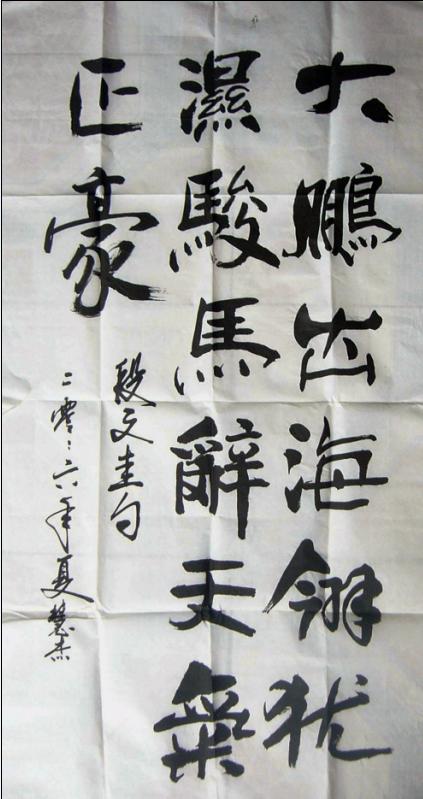 大鵬出海翎犹
濕駿馬辭天氣
正豪
段文圭句
二零々六年夏慧杰